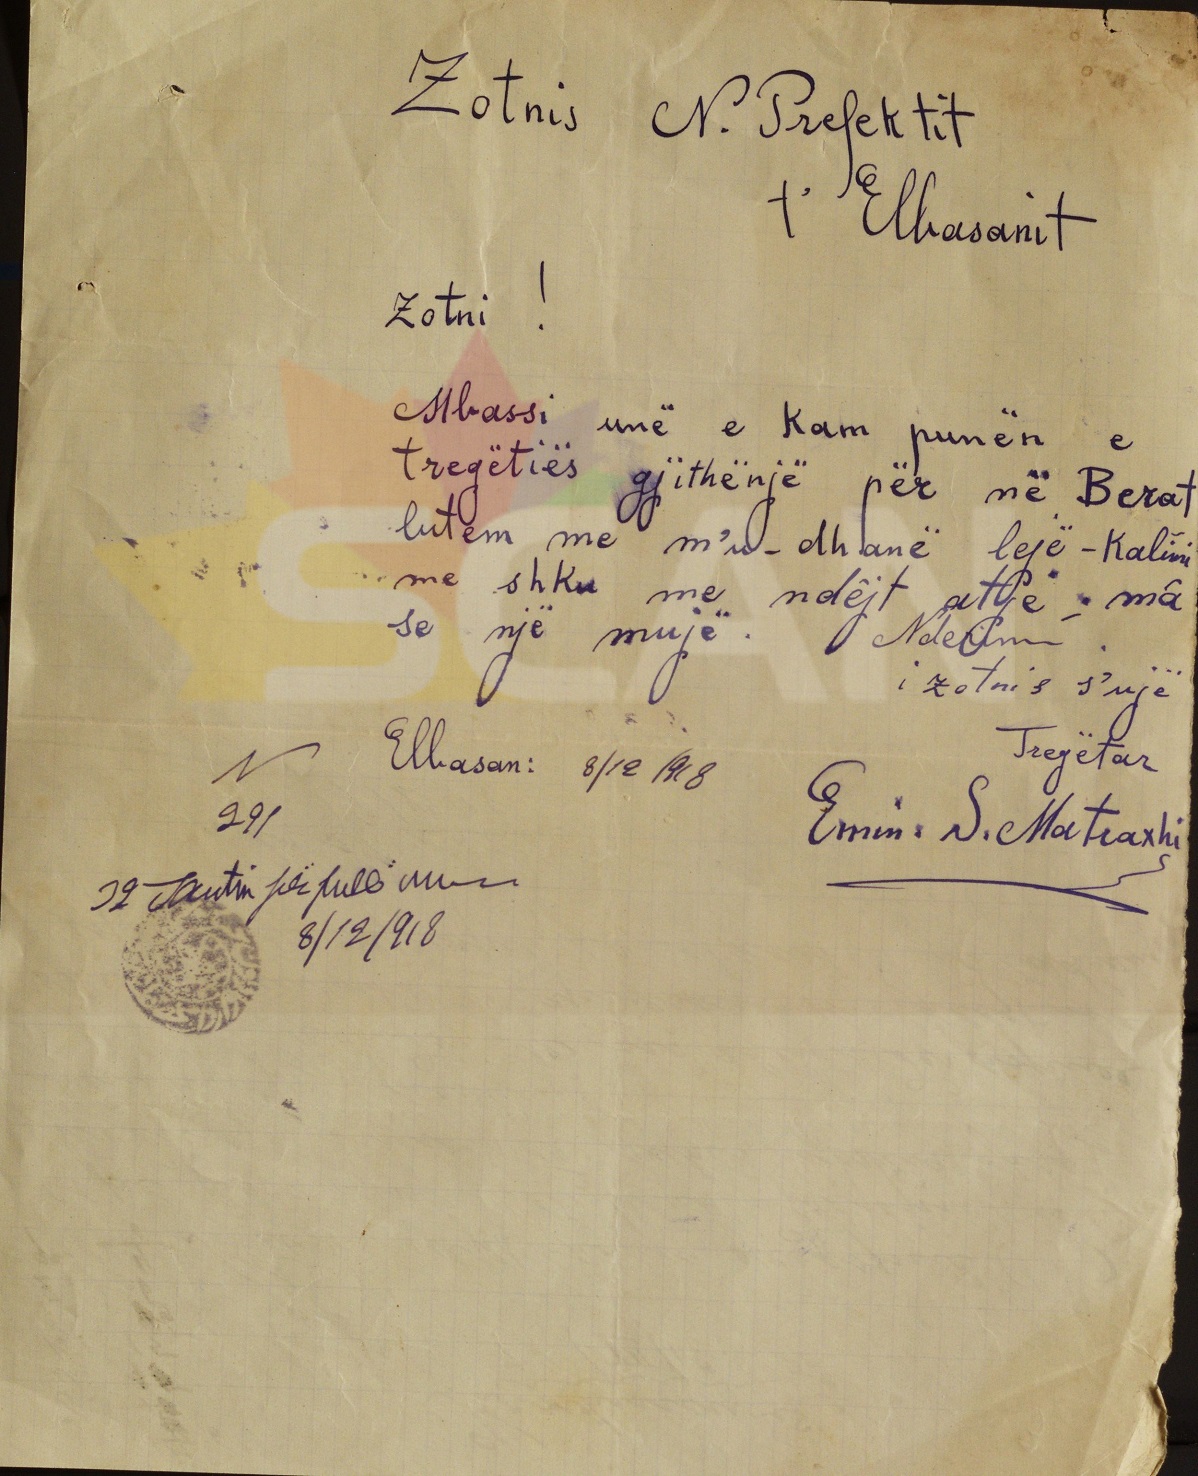 Zotnis N. Prefektit
t' Elbasanit
Zotni !
Mbassi unë e Kam punën e
tregëtiës gjithënjë për në Berat
lutem me m'u-dhanë lejë-Kalimi
me shku me ndêjt atje mâ
se një mujë.
i zotnis s'ujë
Tregëtar
Emin. S. Matraxhi
Elbasan: 8/12/918
N
291
8/12/918
SCAN